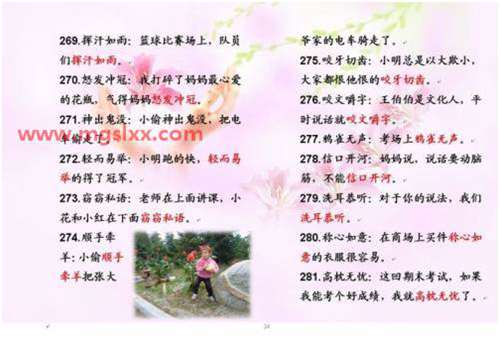 269.挥汗如雨：篮球比赛场上，队员
们挥汗如雨。
270.怒发冲冠：我打碎了妈妈最心爱
的花瓶，气得妈妈怒发冲冠。
271.神出鬼没：小偷神出鬼没，把电
车偷走了。
www.mgslxx.com
272.轻而易举：小明跑的快，轻而易
举的得了冠军。
273.窃窃私语：老师在上面讲课，小
花和小红在下面窃窃私语。
274.顺手牵
羊：小偷顺手
牵羊把张大
爷家的电车骑走了。
275.咬牙切齿：小明总是以大欺小，
大家都恨他恨的咬牙切齿。
276.咬文嚼字：王伯伯是文化人，平
时说话就咬文嚼字。
277.鸦雀无声：考场上鸦雀无声。
278.信口开河：妈妈说，说话要动脑
筋，不能信口开河。
279.洗耳恭听：对于你的说法，我们
洗耳恭听。
280.称心如意：在商场上买件称心如
意的衣服很容易。
281.高枕无忧：这回期末考试，如果
我能考个好成绩，我就高枕无忧了。